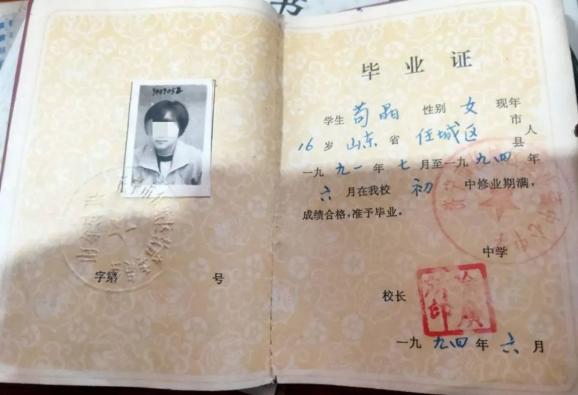 书
字第 号
毕业证
学生 苟晶 性别 女 现年
16 岁 山东 省 任城区 市县 人
一九九一年七月至一九九四年
六月在我校 初 中修业期满，
成绩合格，准予毕业。
中学
校长
一九九四年六月